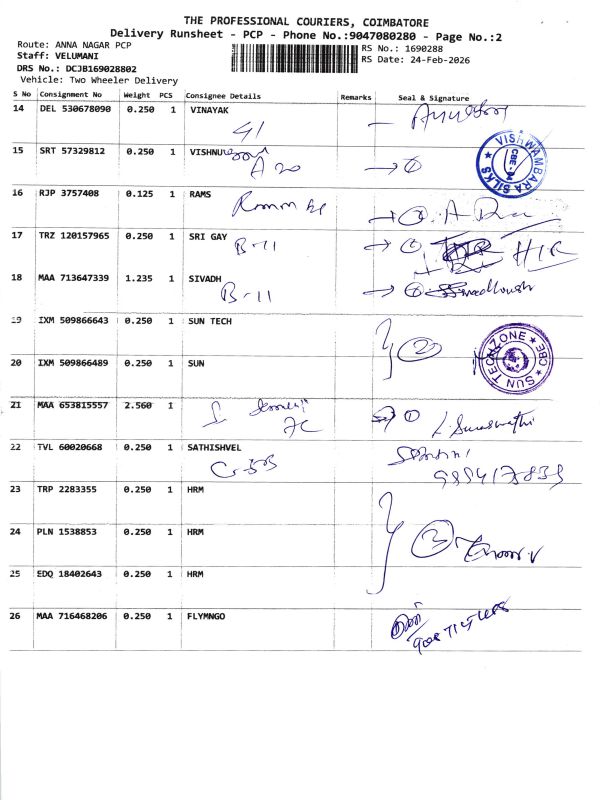 THE PROFESSIONAL COURIERS, COIMBATORE
Delivery Runsheet - PCP - Phone No.:9047080280 - Page No.:2
Route: ANNA NAGAR PCP
Staff: VELUMANI
DRS No.: DCJB169028802
Vehicle: Two Wheeler Delivery
RS No.: 1690288
RS Date: 24-Feb-2026
S No Consignment No Weight PCS Consignee Details Remarks Seal & Signature
14 DEL 530678090 0.250 1 VINAYAK
G1
15 SRT 57329812 0.250 1 VISHNU
A 20 ①
VISHWAMBARA SILKS CBE
16 RJP 3757408 0.125 1 RAMS
17 TRZ 120157965 0.250 1 SRI GAY
B-11 ① HIR
18 MAA 713647339 1.235 1 SIVADH
B-11 ①
19 IXM 509866643 0.250 1 SUN TECH
②
SUN TECHZONE CBE
20 IXM 509866489 0.250 1 SUN
21 MAA 653815557 2.560 1
7C ① L. Saraswathi
22 TVL 60020668 0.250 1 SATHISHVEL
23 TRP 2283355 0.250 1 HRM
24 PLN 1538853 0.250 1 HRM
③
25 EDQ 18402643 0.250 1 HRM
26 MAA 716468206 0.250 1 FLYMNGO